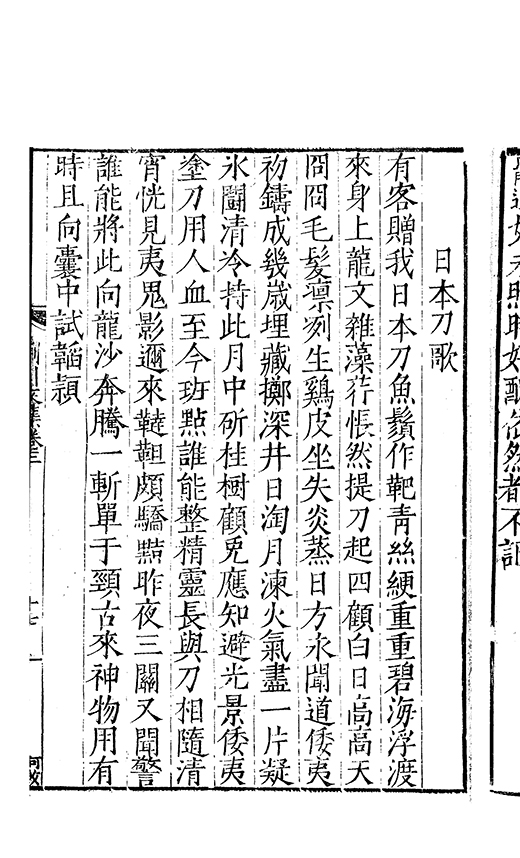 日本刀歌
有客贈我日本刀魚鬚作靶青絲綆重重碧海浮渡
來身上龍文雜藻荇悵然提刀起四顧白日高高天
冏冏毛髮凛冽生鷄皮坐失炎蒸日方永聞道倭夷
初鑄成幾歲埋藏擲深井日淘月湅火氣盡一片凝
氷鬭清冷持此月中斫桂樹顧兎應知避光景倭夷
塗刀用人血至今班點誰能整精靈長與刀相隨清
宵恍見夷鬼影邇來韃靼頗驕黠昨夜三關又聞警
誰能將此向龍沙奔騰一斬單于頸古來神物用有
時且向囊中試韜頴